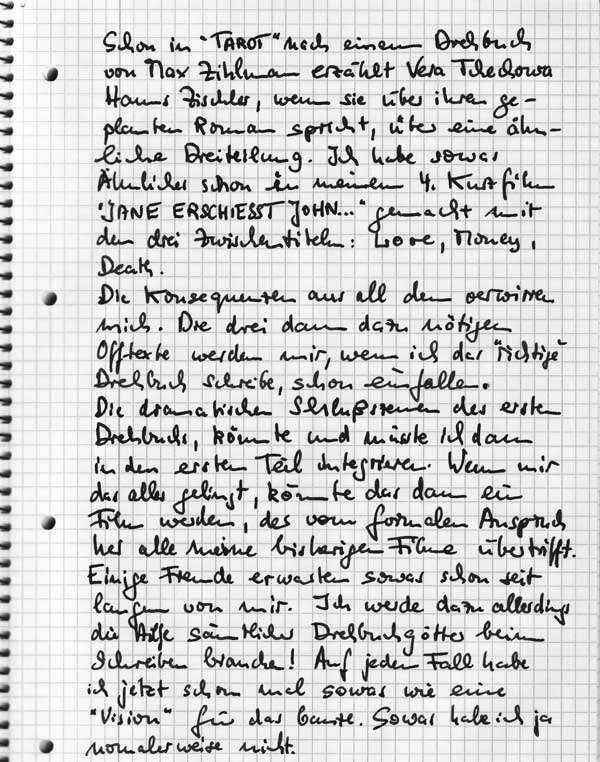 Schon in "TAROT" nach einem Drehbuch
von Max Zihlman erzählt Vera Tschechowa
Hanns Zischler, wenn sie über ihren ge-
planten Roman spricht, über eine ähn-
liche Dreiteilung. Ich habe sowas
Ähnliches schon in meinem 4. Kurzfilm
"JANE ERSCHIESST JOHN..." gemacht mit
den drei Zwischentiteln: Love, Money,
Death.
Die Konsequenzen aus all dem verwirren
mich. Die drei dann dazu nötigen
Offtexte werden mir, wenn ich das "richtige"
Drehbuch schreibe, schon einfallen.
Die dramatischen Schlußszenen des ersten
Drehbuchs, könnte und müsste ich dann
in den ersten Teil integrieren. Wenn mir
das alles gelingt, könnte das dann ein
Film werden, der vom formalen Anspruch
her alle meine bisherigen Filme übertrifft.
Einige Freunde erwarten sowas schon seit
langem von mir. Ich werde dazu allerdings
die Hilfe sämtlicher Drehbuchgötter beim
Schreiben brauchen! Auf jeden Fall habe
ich jetzt schon mal sowas wie eine
"Vision" für das Ganze. Sowas habe ich ja
normalerweise nicht.